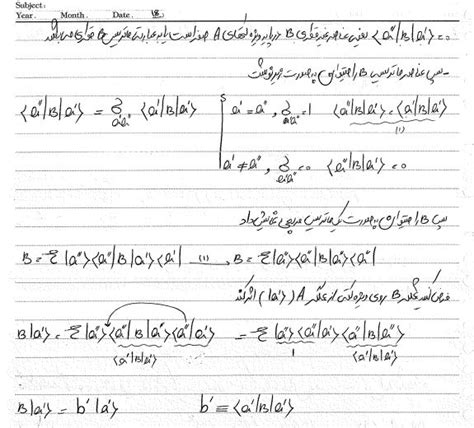 Subject:
Year. Month. Date. 18
⟨a″|B|a′⟩ = 0 یعنی عناصر غیر قطری B در پایه ویژه کتهای A صفر است یا به عبارتی ماتریس B قطری می‌باشد
پس عناصر ماتریس B را میتوان به صورت زیر نوشت
⟨a″|B|a′⟩ = δ_{a′a″} ⟨a′|B|a′⟩ { a′ = a″ , δ_{a′a″} = 1 ⟨a″|B|a′⟩ = ⟨a′|B|a′⟩ (1)
a′ ≠ a″ , δ_{a′a″} = 0 ⟨a″|B|a′⟩ = 0
پس B را میتوان به صورت یک ماتریس مربعی نمایش داد
B = Σ |a″⟩⟨a″|B|a′⟩⟨a′| (1)→ B = Σ |a″⟩⟨a″|B|a″⟩⟨a″|
فرض کنید عملگر B روی ویژه کتی از عملگر A (|a′⟩) اثر کند
B|a′⟩ = Σ |a″⟩⟨a″|B|a″⟩⟨a″|a′⟩ = Σ |a″⟩⟨a″|a′⟩⟨a″|B|a″⟩
⟨a′|B|a′⟩ 1 ⟨a′|B|a′⟩
B|a′⟩ = b′|a′⟩ b′ ≡ ⟨a′|B|a′⟩